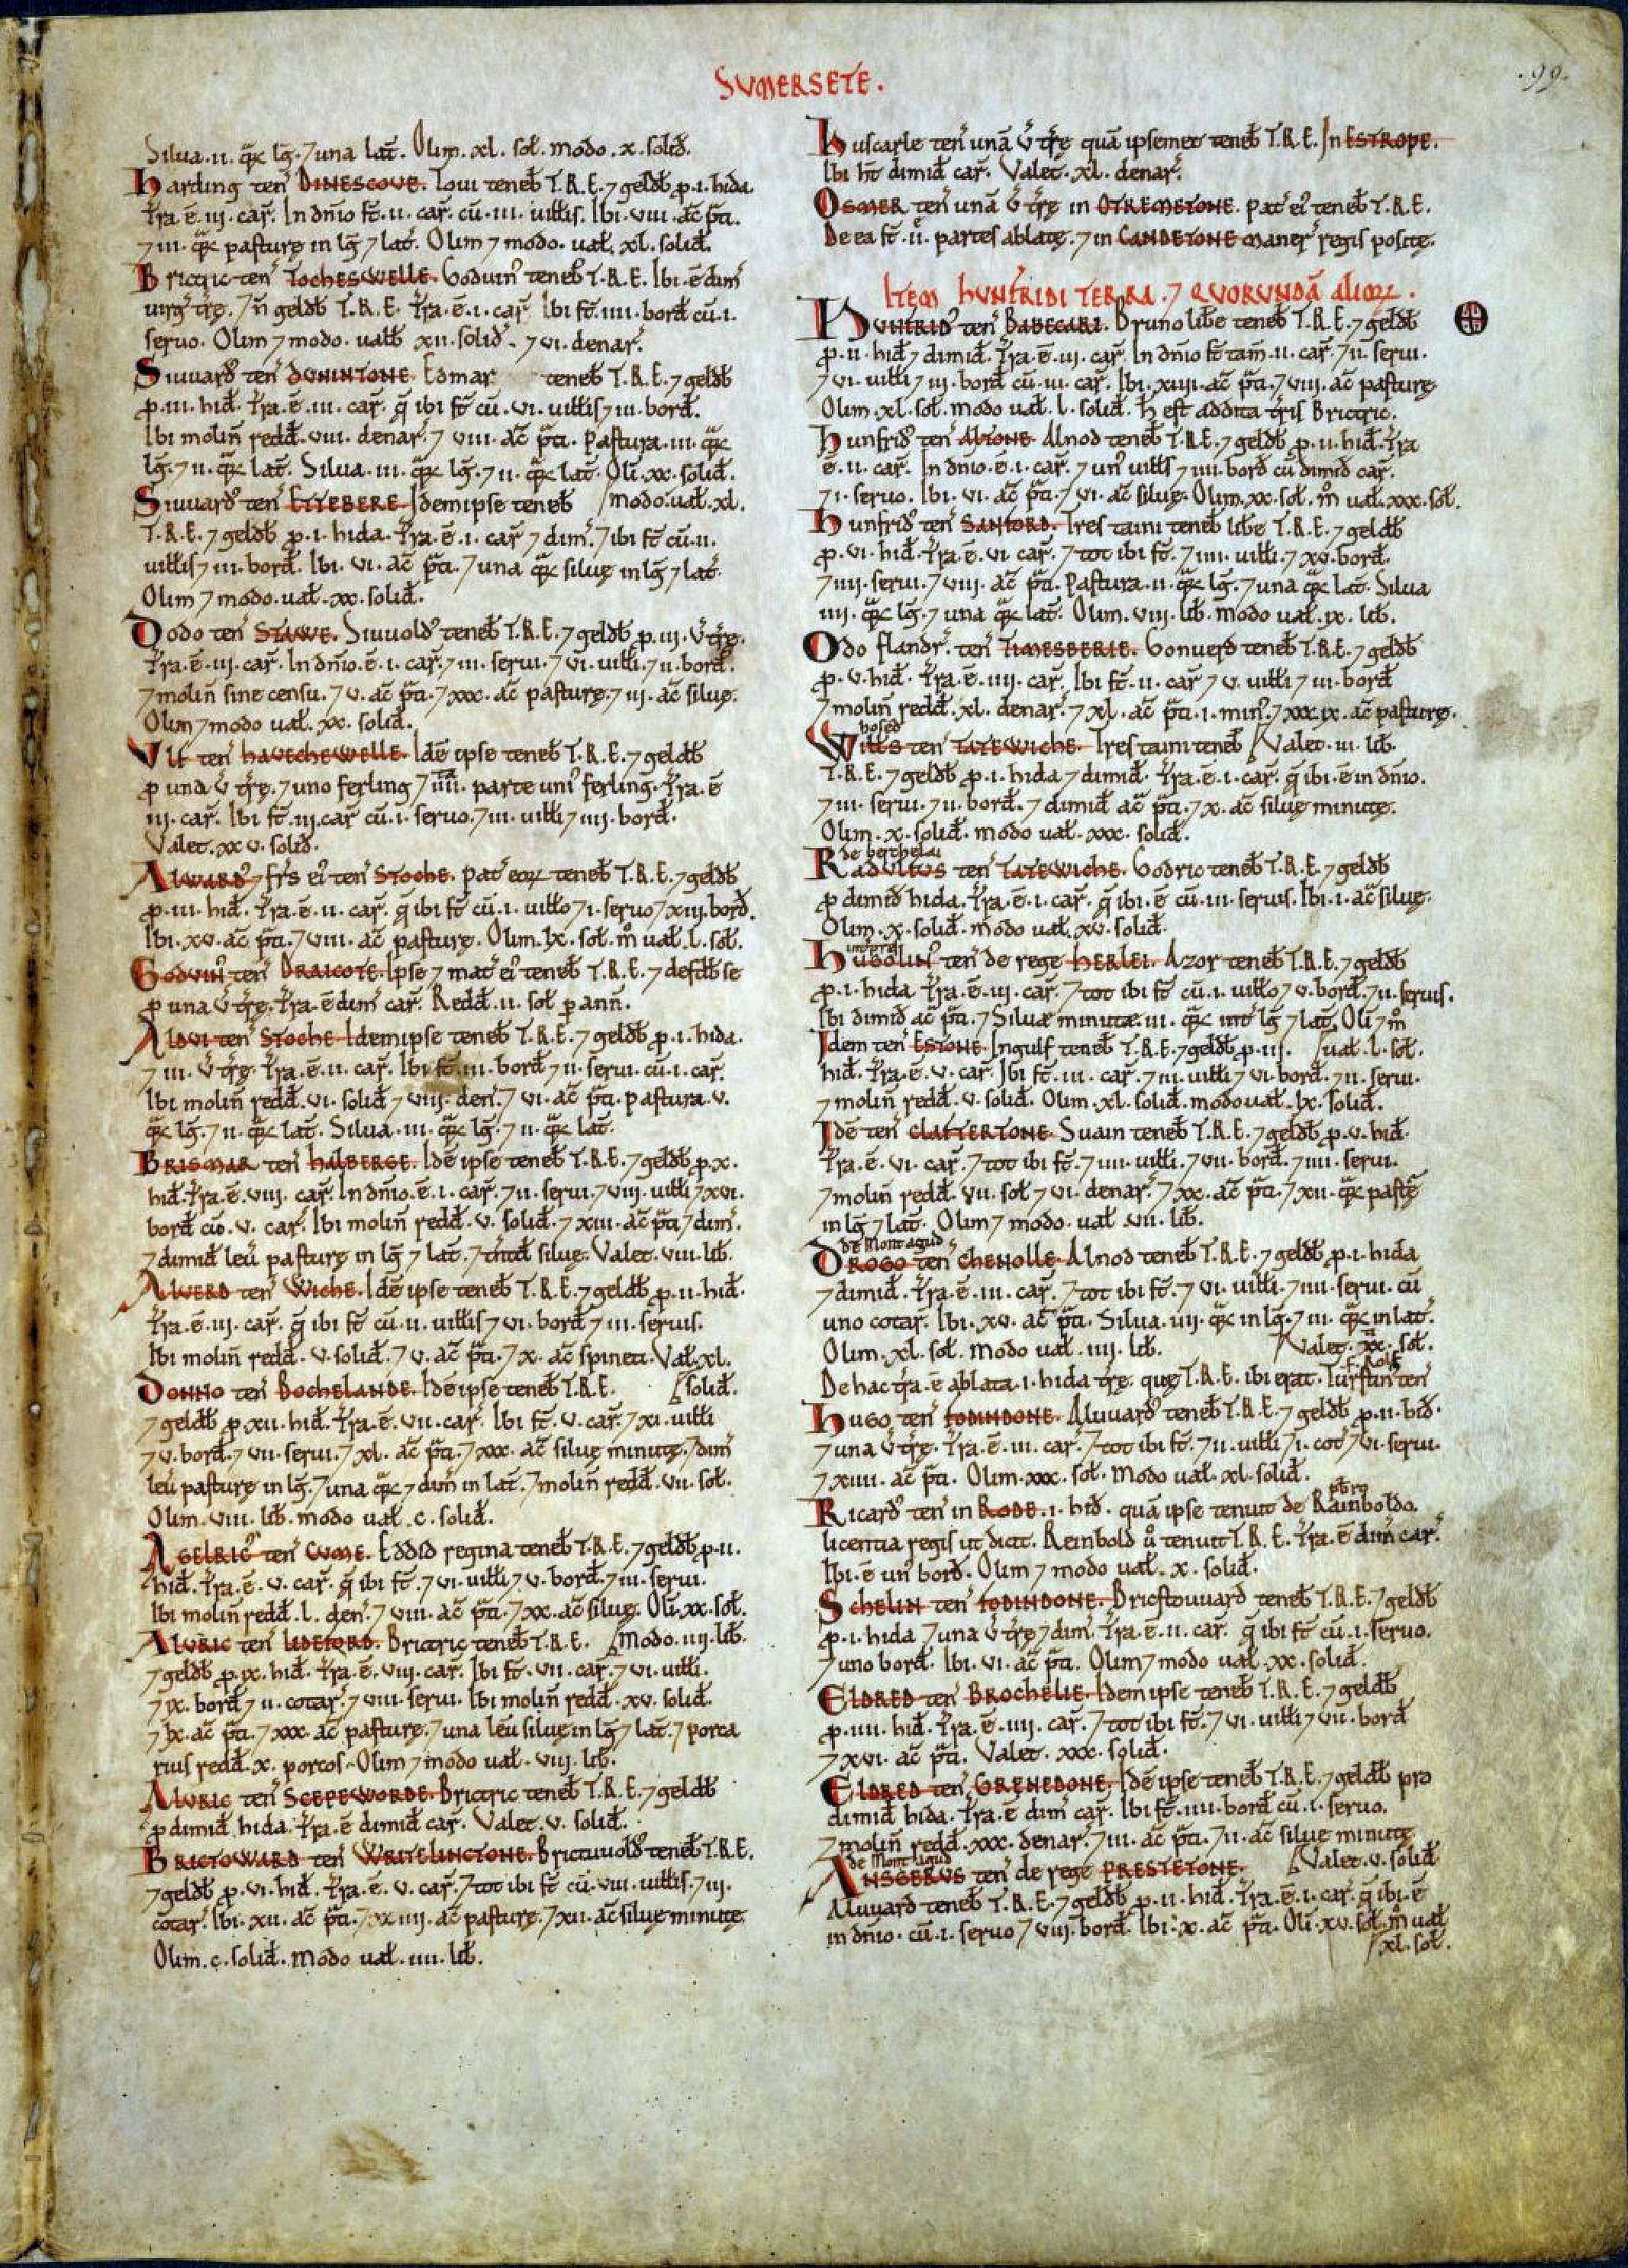 SUMERSETE.
.99.
Silua .ii. q̃ꝛ lg̃. ⁊ una lat̃. Olim. xl. sol̃. modo. x. solid̃.
Harding ten̄ DINESCOVE. Toui teneb̃ T.R.E. ⁊ geldb̃ p̱.i. hida
Tr̃a.ē.iii. car̃. In dn̄io st̃.ii. car̃. cū.iii. uill̃is. Ibi.viii. ac̃ p̃ti.
⁊ iii. q̃ꝛ pasturę in lg̃ ⁊ lat̃. Olim ⁊ modo. ual̃. xl. solid̃.
Brictric ten̄ TOCHESWELLE. Goduin̄ teneb̃ T.R.E. Ibi.ē dim̄
uirg̃ tr̃ę. ⁊ n̄ geldb̃ T.R.E. Tr̃a.ē.i. car̃. Ibi st̃.iiii. bord̃ cū.i.
seruo. Olim ⁊ modo. ualb̃ xii. solid̃. ⁊ vi. denar̃.
Siuuard̓ ten̄ DUNINTONE. Edmar teneb̃ T.R.E. ⁊ geldb̃
p̱.iii. hid̃. Tr̃a.ē.iii. car̃. q̄ ibi st̃ cū.vi. uill̃is ⁊ iii. bord̃.
Ibi molin̄ redd̃.viii. denar̃. ⁊ viii. ac̃ p̃ti. Pastura.iii. q̃ꝛ
lg̃. ⁊ ii. q̃ꝛ lat̃. Silua.iii. q̃ꝛ lg̃. ⁊ ii. q̃ꝛ lat̃. Oli̅.xx. solid̃.
Siuuard̓ ten̄ ETTEBERE. Idem ipse teneb̃ modo. ual̃. xl.
T.R.E. ⁊ geldb̃ p̱.i. hida. Tr̃a.ē.i. car̃ ⁊ dim̄. ⁊ ibi st̃ cū.ii.
uill̃is ⁊ iii. bord̃. Ibi.vi. ac̃ p̃ti. ⁊ una q̃ꝛ siluę in lg̃ ⁊ lat̃.
Olim ⁊ modo. ual̃. xx. solid̃.
Dodo ten̄ STAWE. Siuuold̓ teneb̃ T.R.E. ⁊ geldb̃ p̱.iii. v̄ tr̃ę.
Tr̃a.ē.iii. car̃. In dn̄io.ē.i. car̃. ⁊ iii. serui. ⁊ vi. uill̃i. ⁊ ii. bord̃.
⁊ molin̄ sine censu. ⁊ v. ac̃ p̃ti. ⁊ xxx. ac̃ pasturę. ⁊ iii. ac̃ siluę.
Olim ⁊ modo ual̃. xx. solid̃.
Vlf ten̄ HAVECHEWELLE. Idē ipse teneb̃ T.R.E. ⁊ geldb̃
p̱ una v̄ tr̃ę. ⁊ uno ferling ⁊ iiii. parte uni̓ ferling. Tr̃a.ē
iii. car̃. Ibi st̃.iii. car̃ cū.i. seruo. ⁊ iii. uill̃i ⁊ iiii. bord̃.
Valet. xxv. solid̃.
Alward̓ ⁊ fr̃s ei̓ ten̄ STOCHE. Pat̓ eoꝝ teneb̃ T.R.E. ⁊ geldb̃
p̱.iii. hid̃. Tr̃a.ē.ii. car̃. q̄ ibi st̃ cū.i. uill̃o ⁊ i. seruo ⁊ xiii. bord̃.
Ibi.xv. ac̃ p̃ti. ⁊ viii. ac̃ pasturę. Olim. lx. sol̃. m̊ ual̃. l. sol̃.
Goduin̓ ten̄ DRAICOTE. Ipse ⁊ mat̓ ei̓ teneb̃ T.R.E. ⁊ defdb̃ se
p̱ una v̄ tr̃ę. Tr̃a.ē dim̄ car̃. Redd̃. ii. sol̃ p̱ ann̄.
Aldvi ten̄ STOCHE. Idem ipse teneb̃ T.R.E. ⁊ geldb̃ p̱.i. hida.
⁊ iii. v̄ tr̃ę. Tr̃a.ē.ii. car̃. Ibi st̃.iii. bord̃ ⁊ ii. serui. cū.i. car̃.
Ibi molin̄ redd̃.vi. solid̃ ⁊ viii. den̄. ⁊ vi. ac̃ p̃ti. Pastura.v.
q̃ꝛ lg̃. ⁊ ii. q̃ꝛ lat̃. Silua.iii. q̃ꝛ lg̃. ⁊ ii. q̃ꝛ lat̃.
Brismar ten̄ HALBERGE. Idē ipse teneb̃ T.R.E. ⁊ geldb̃ p̱.x.
hid̃. Tr̃a.ē.viii. car̃. In dn̄io.ē.i. car̃. ⁊ ii. serui. ⁊ viii. uill̃i ⁊ xvi.
bord̃ cū.v. car̃. Ibi molin̄ redd̃.v. solid̃. ⁊ xiii. ac̃ p̃ti ⁊ dim̄.
⁊ dimid̃ leu̅ pasturę in lg̃ ⁊ lat̃. ⁊ tn̄td̃ siluę. Valet. viii. lib̃.
Alwerd ten̄ WICHE. Idē ipse teneb̃ T.R.E. ⁊ geldb̃ p̱.ii. hid̃.
Tr̃a.ē.iii. car̃. q̄ ibi st̃ cū.ii. uill̃is ⁊ vi. bord̃ ⁊ iii. seruis.
Ibi molin̄ redd̃.v. solid̃. ⁊ v. ac̃ p̃ti. ⁊ x. ac̃ spineti. Val̃. xl.
Donno ten̄ BOCHELANDE. Idē ipse teneb̃ T.R.E. solid̃.
⁊ geldb̃ p̱.xii. hid̃. Tr̃a.ē.vii. car̃. Ibi st̃.v. car̃. ⁊ xi. uill̃i
⁊ v. bord̃. ⁊ vii. serui. ⁊ xl. ac̃ p̃ti. ⁊ xxx. ac̃ siluę minutę. ⁊ dim̄
leu̅ pasturę in lg̃. ⁊ una q̃ꝛ ⁊ dim̄ in lat̃. ⁊ molin̄ redd̃. vii. sol̃.
Olim. viii. lib̃. modo ual̃. c. solid̃.
Aelric̓ ten̄ CUME. Eddid regina teneb̃ T.R.E. ⁊ geldb̃ p̱.ii.
hid̃. Tr̃a.ē.v. car̃. q̄ ibi st̃. ⁊ vi. uill̃i ⁊ v. bord̃. ⁊ iii. serui.
Ibi molin̄ redd̃. l. den̄. ⁊ viii. ac̃ p̃ti. ⁊ xx. ac̃ siluę. Oli̅. xx. sol̃.
Aluric ten̄ LIDEFORD. Brictric teneb̃ T.R.E. Modo. iiii. lib̃.
⁊ geldb̃ p̱.ix. hid̃. Tr̃a.ē.viii. car̃. Ibi st̃.vii. car̃. ⁊ vi. uill̃i.
⁊ ix. bord̃ ⁊ ii. cotar̃. ⁊ viii. serui. Ibi molin̄ redd̃. xv. solid̃.
⁊ lx. ac̃ p̃ti. ⁊ xxx. ac̃ pasturę. ⁊ una leu̅ siluę in lg̃ ⁊ lat̃. ⁊ porca
rius redd̃. x. porcos. Olim ⁊ modo ual̃. viii. lib̃.
Aluric ten̄ SCEPEWORDE. Brictric teneb̃ T.R.E. ⁊ geldb̃
p̱ dimid̃ hida. Tr̃a.ē dimid̃ car̃. Valet. v. solid̃.
Brictoward ten̄ WRITELINCTONE. Brictuuold̓ teneb̃ T.R.E.
⁊ geldb̃ p̱.vi. hid̃. Tr̃a.ē.v. car̃. ⁊ tot ibi st̃ cū.viii. uill̃is. ⁊ iii.
cotar̃. Ibi.xii. ac̃ p̃ti. ⁊ xxiiii. ac̃ pasturę. ⁊ xii. ac̃ siluę minutę.
Olim. c. solid̃. Modo ual̃. iiii. lib̃.
Huscarle ten̄ unā v̄ tr̃ę quā ipsemet teneb̃ T.R.E. In ESTROPE.
Ibi ht̃ dimid̃ car̃. Valet. xl. denar̃.
Osmer ten̄ unā v̄ tr̃ę in OTREMETONE. Pat̓ ei̓ teneb̃ T.R.E.
De ea st̃.ii. partes ablatę. ⁊ in CANDETONE maner̃ regis positę.
ITEM HUNFRIDI TERRA. ⁊ QUORUNDĀ alioꝝ.
Hunfrid̓ ten̄ BABECARI. Bruno libe teneb̃ T.R.E. ⁊ geldb̃
p̱.ii. hid̃ ⁊ dimid̃. Tr̃a.ē.iii. car̃. In dn̄io st̃ tam̄.ii. car̃. ⁊ ii. serui.
⁊ vi. uill̃i ⁊ iii. bord̃ cū.iii. car̃. Ibi.xiiii. ac̃ p̃ti. ⁊ viii. ac̃ pasturę
Olim. xl. sol̃. modo ual̃. l. solid̃. H̄ est addita tr̃is Brictric.
Hunfrid̓ ten̄ ALTONE. Alnod teneb̃ T.R.E. ⁊ geldb̃ p̱.ii. hid̃. Tr̃a
ē.ii. car̃. In dn̄io.ē.i. car̃. ⁊ un̓ uill̃s ⁊ iiii. bord̃ cū dimid̃ car̃.
⁊ i. seruo. Ibi.vi. ac̃ p̃ti. ⁊ vi. ac̃ siluę. Olim. xx. sol̃. m̊ ual̃. xxx. sol̃.
Hunfrid̓ ten̄ SANFORD. Tres taini teneb̃ libe T.R.E. ⁊ geldb̃
p̱.vi. hid̃. Tr̃a.ē.vi. car̃. ⁊ tot ibi st̃. ⁊ iiii. uill̃i. ⁊ xv. bord̃.
⁊ iiii. serui. ⁊ viii. ac̃ p̃ti. Pastura.ii. q̃ꝛ lg̃. ⁊ una q̃ꝛ lat̃. Silua
iiii. q̃ꝛ lg̃. ⁊ una q̃ꝛ lat̃. Olim. viii. lib̃. modo ual̃. ix. lib̃.
Odo flandr̃. ten̄ TIMESBERIE. Gonuerd teneb̃ T.R.E. ⁊ geldb̃
p̱.v. hid̃. Tr̃a.ē.iiii. car̃. Ibi st̃.ii. car̃ ⁊ v. uill̃i ⁊ iii. bord̃
⁊ molin̄ redd̃. xl. denar̃. ⁊ xl. ac̃ p̃ti.i. min̓. ⁊ xxxix. ac̃ pasturę.
hosed
Will̃s ten̄ TATEWICHE. Tres taini teneb̃ Valet. iii. lib̃.
T.R.E. ⁊ geldb̃ p̱.i. hida ⁊ dimid̃. Tr̃a.ē.i. car̃. q̄ ibi.ē in dn̄io.
⁊ iii. serui. ⁊ ii. bord̃. ⁊ dimid̃ ac̃ p̃ti. ⁊ x. ac̃ siluę minutę.
Olim. x. solid̃. modo ual̃. xxx. solid̃.
de berchelai
Radulfus ten̄ TATEWICHE. Godric teneb̃ T.R.E. ⁊ geldb̃
p̱ dimid̃ hida. Tr̃a.ē.i. car̃. q̄ ibi.ē cū.iii. seruis. Ibi.i. ac̃ siluę.
Olim. x. solid̃. modo ual̃. xv. solid̃.
Hugolin̓ ten̄ de rege HERLEI. Azor teneb̃ T.R.E. ⁊ geldb̃
p̱.i. hida. Tr̃a.ē.iii. car̃. ⁊ tot ibi st̃ cū.i. uill̃o ⁊ v. bord̃. ⁊ ii. seruis.
Ibi dimid̃ ac̃ p̃ti. ⁊ Silua minuta.iii. q̃ꝛ int̃ lg̃ ⁊ lat̃. Oli̅ ⁊ m̊
Idem ten̄ ESTONE. Ingulf teneb̃ T.R.E. ⁊ geldb̃ p̱.iii. ual̃. l. sol̃.
hid̃. Tr̃a.ē.v. car̃. Ibi st̃.iii. car̃. ⁊ iii. uill̃i ⁊ vi. bord̃. ⁊ ii. serui.
⁊ molin̄ redd̃.v. solid̃. Olim. xl. solid̃. modo ual̃. lx. solid̃.
Idē ten̄ CLAFTERTONE. Suain teneb̃ T.R.E. ⁊ geldb̃ p̱.v. hid̃.
Tr̃a.ē.vi. car̃. ⁊ tot ibi st̃. ⁊ iiii. uill̃i. ⁊ vii. bord̃. ⁊ iiii. serui.
⁊ molin̄ redd̃. vii. sol̃ ⁊ vi. denar̃. ⁊ xx. ac̃ p̃ti. ⁊ xii. q̃ꝛ pastę̃
in lg̃ ⁊ lat̃. Olim ⁊ modo. ual̃ vii. lib̃.
de Montagud
Drogo ten̄ CHENOLLE. Alnod teneb̃ T.R.E. ⁊ geldb̃ p̱.i. hida
⁊ dimid̃. Tr̃a.ē.iii. car̃. ⁊ tot ibi st̃. ⁊ vi. uill̃i. ⁊ iiii. serui. cū
uno cotar̃. Ibi. xv. ac̃ p̃ti. Silua.iiii. q̃ꝛ in lg̃. ⁊ iii. q̃ꝛ in lat̃.
Olim. xl. sol̃. Modo ual̃. iiii. lib̃. Valet. xx. sol̃.
f. Rolf
De hac tr̃a.ē ablata.i. hida tr̃ę. quę T.R.E. ibi erat. Turstin ten̄
Hugo ten̄ TODINDONE. Aluuard̓ teneb̃ T.R.E. ⁊ geldb̃ p̱.ii. hid̃.
⁊ una v̄ tr̃ę. Tr̃a.ē.iii. car̃. ⁊ tot ibi st̃. ⁊ ii. uill̃i ⁊ i. cot̓ ⁊ vi. serui.
⁊ xiiii. ac̃ p̃ti. Olim. xxx. sol̃. Modo ual̃. xl. solid̃.
pb̃ro
Ricard̓ ten̄ in RODE.i. hid̃. quā ipse tenuit de Rainboldo.
licentia regis ut dicit. Reinbold ů tenuit T.R.E. Tr̃a.ē dim̄ car̃.
Ibi.ē un̓ bord̃. Olim ⁊ modo ual̃. x. solid̃.
Schelin ten̄ TODINDONE. Bricstouuard teneb̃ T.R.E. ⁊ geldb̃
p̱.i. hida ⁊ una v̄ tr̃ę ⁊ dim̄. Tr̃a.ē.ii. car̃. q̄ ibi st̃ cū.i. seruo.
⁊ uno bord̃. Ibi.vi. ac̃ p̃ti. Olim ⁊ modo ual̃. xx. solid̃.
Eldred ten̄ BROCHELIE. Idem ipse teneb̃ T.R.E. ⁊ geldb̃
p̱.iiii. hid̃. Tr̃a.ē.iiii. car̃. ⁊ tot ibi st̃. ⁊ vi. uill̃i ⁊ vii. bord̃
⁊ xvi. ac̃ p̃ti. Valet. xxx. solid̃.
Eldred ten̄ GRENEDONE. Idē ipse teneb̃ T.R.E. ⁊ geldb̃ pro
dimid̃ hida. Tr̃a.ē dim̄ car̃. Ibi st̃.iiii. bord̃ cū.i. seruo.
⁊ molin̄ redd̃. xxx. denar̃. ⁊ iii. ac̃ p̃ti. ⁊ ii. ac̃ siluę minutę
de Montagud Valet. v. solid̃
Ansgerus ten̄ de rege PRESTETONE.
Aluuard teneb̃ T.R.E. ⁊ geldb̃ p̱.ii. hid̃. Tr̃a.ē.i. car̃. q̄ ibi.ē
in dn̄io. cū.i. seruo ⁊ viii. bord̃. Ibi.x. ac̃ p̃ti. Oli̅. xv. sol̃. m̊ ual̃
xl. sol̃.